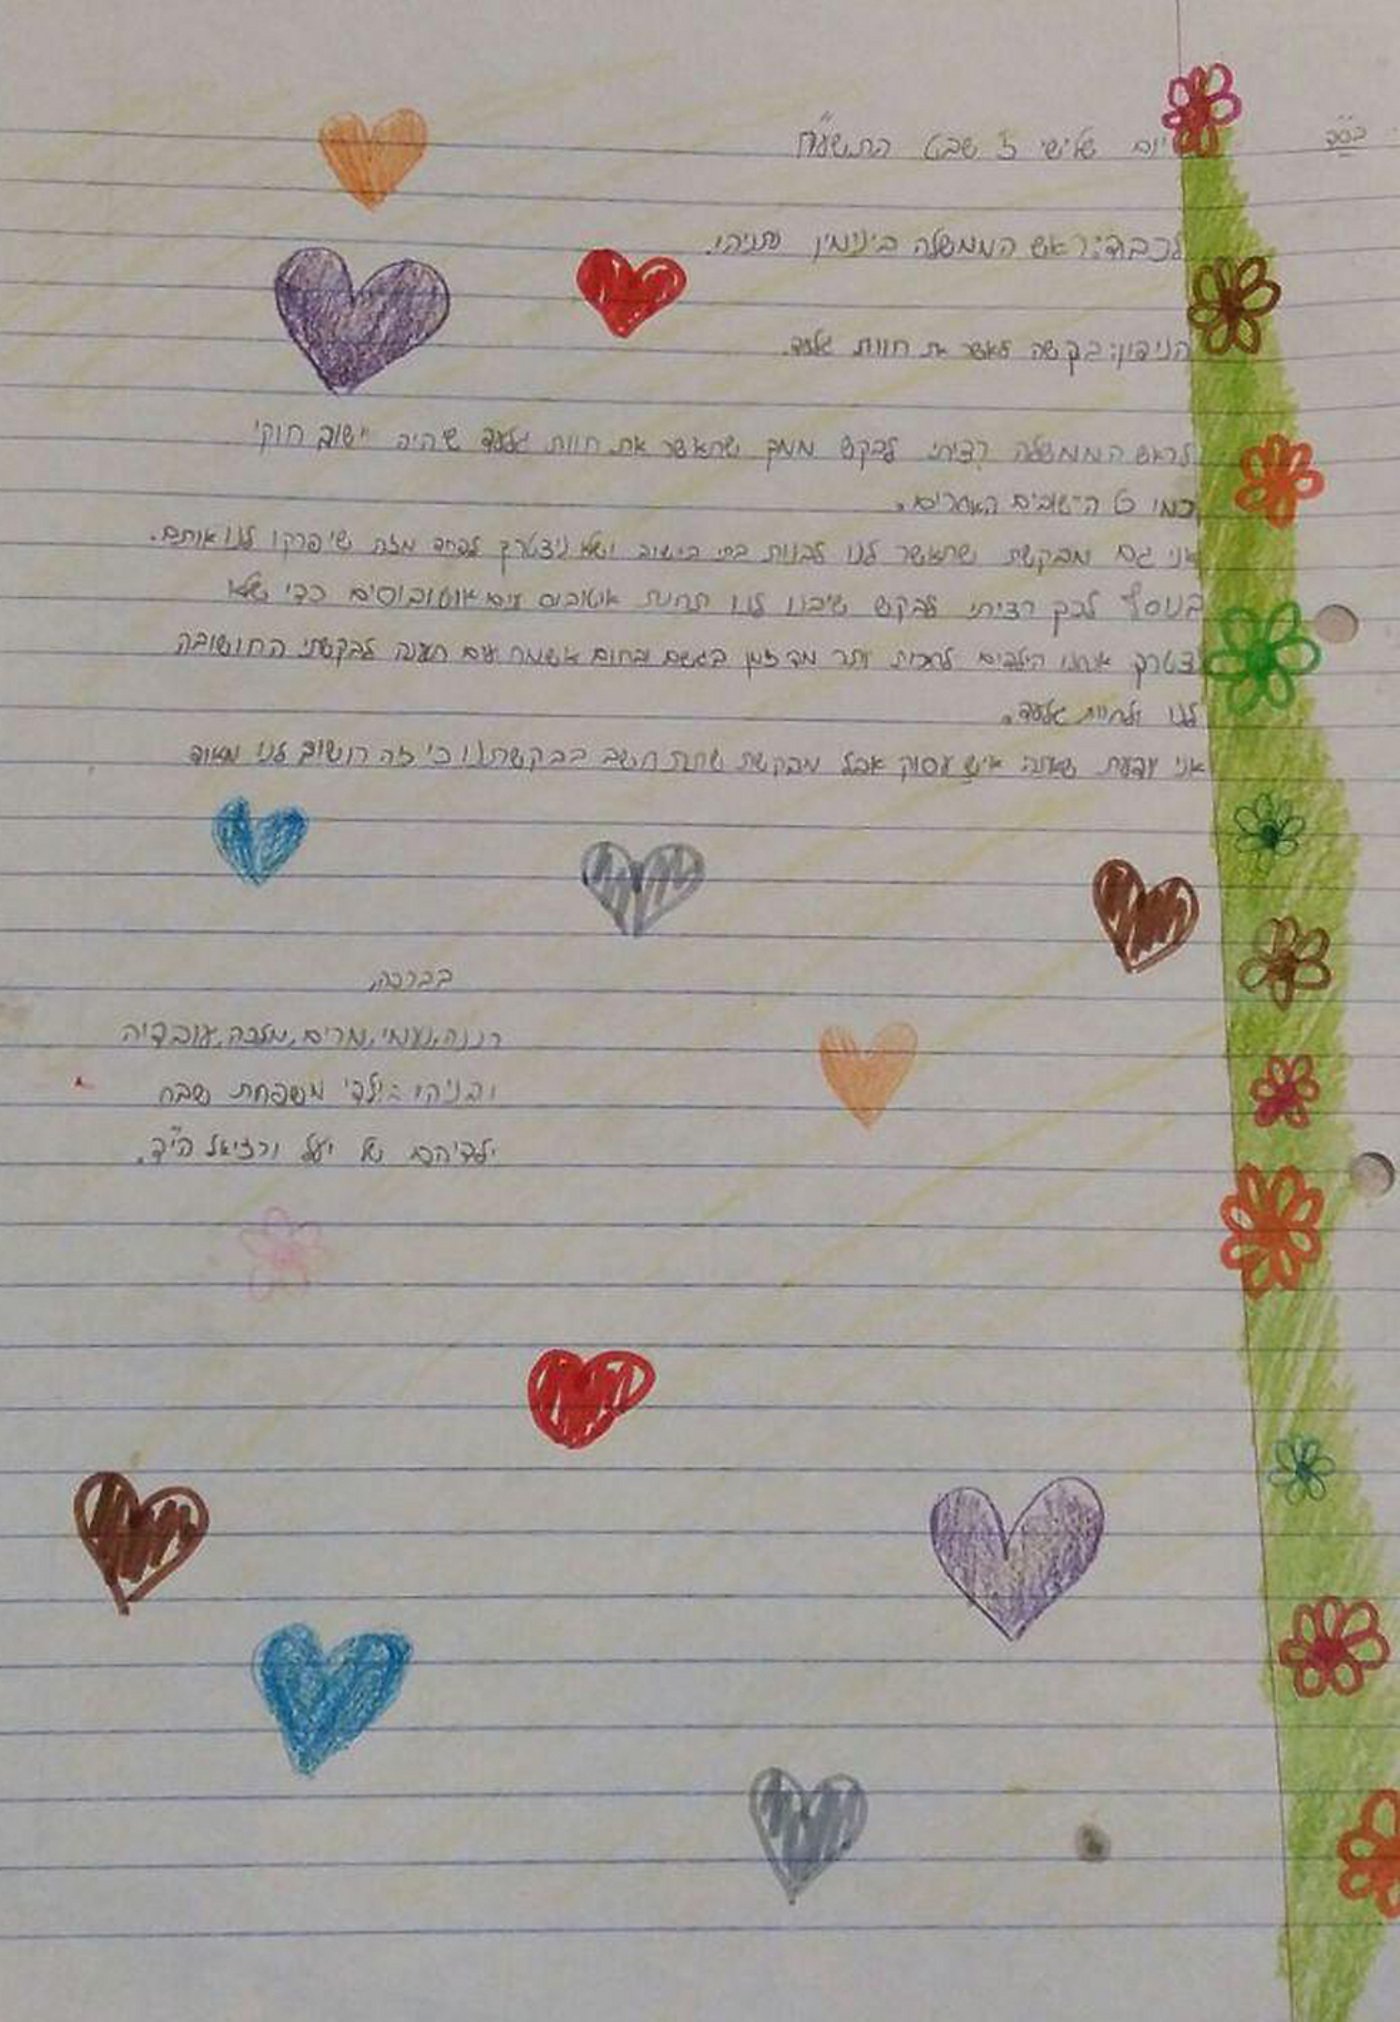 בס"ד
יום שלישי ז שבט התשע"ח
לכבוד: ראש הממשלה בינימין נתניהו.
הנידון: בקשה לאשר את חוות גלעד.
לראש הממשלה רציתי לבקש ממך שתאשר את חוות גלעד שיהיה יישוב חוקי
כמו כל היישובים האחרים.
אני גם מבקשת שתאשר לנו לבנות בתי בישוב ושלא ניצטרך לפחד מזה שיפרקו לנו אותם.
בנוסף לכך רציתי לבקש שיבנו לנו תחנת אוטובוס עים אוטובוסים כדי שלא
נצטרך אנחנו הילדים לחכות יותר מד זמן בגשם ובחום אשמח עים תענה לבקשתי החושובה
לנו ולחוות גלעד.
אני יודעת שאתה איש עסוק אבל מבקשת שתתחשב בבקשתנו כי זה חשוב לנו מאוד
בברכה,
רננה, נעמי, מרים, מלכה, עובדיה
ובניהו ילדי משפחת שבח
ילדיהם של יעל ורזיאל הי"ד.